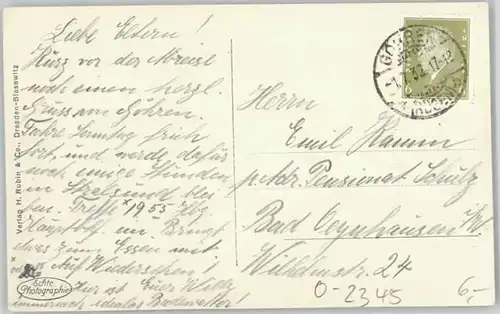 Liebe Eltern!
Kurz vor der Abreise
noch einen herzl.
Gruss von Göhren.
Fahre Sonntag früh
fort, und werde dafür
noch einige Stunden
in Stralsund blei
ben. Treffe 19 55 Hbg
Hauptbhf. ein. Bringt
etwas zum Essen mit
Auf Wiedersehen!
Kurt Euer Willy
immernoch ideales Badewetter!
Verlag H. Rubin & Co., Dresden-Blasewitz
Echte
Photographie
GÖHREN
1.7.32.17-18
(RÜGEN)
6
Herrn
Emil Ramm
p. Adr. Pensionat Schulz
Bad Oeynhausen
Wilhelmstr. 24
0-2345
6,-